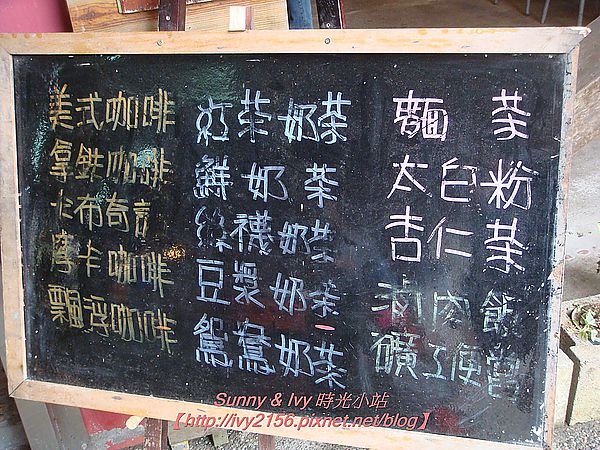 美式咖啡
拿鉄咖啡
卡布奇言
摩卡咖啡
飄浮咖啡
紅茶奶茶
鮮奶茶
絲襪奶茶
豆漿奶茶
鴛鴦奶茶
麵茶
太白粉
杏仁茶
滷肉飯
礦工便當
Sunny & Ivy 時光小站
【http://ivy2156.pixnet.net/blog】